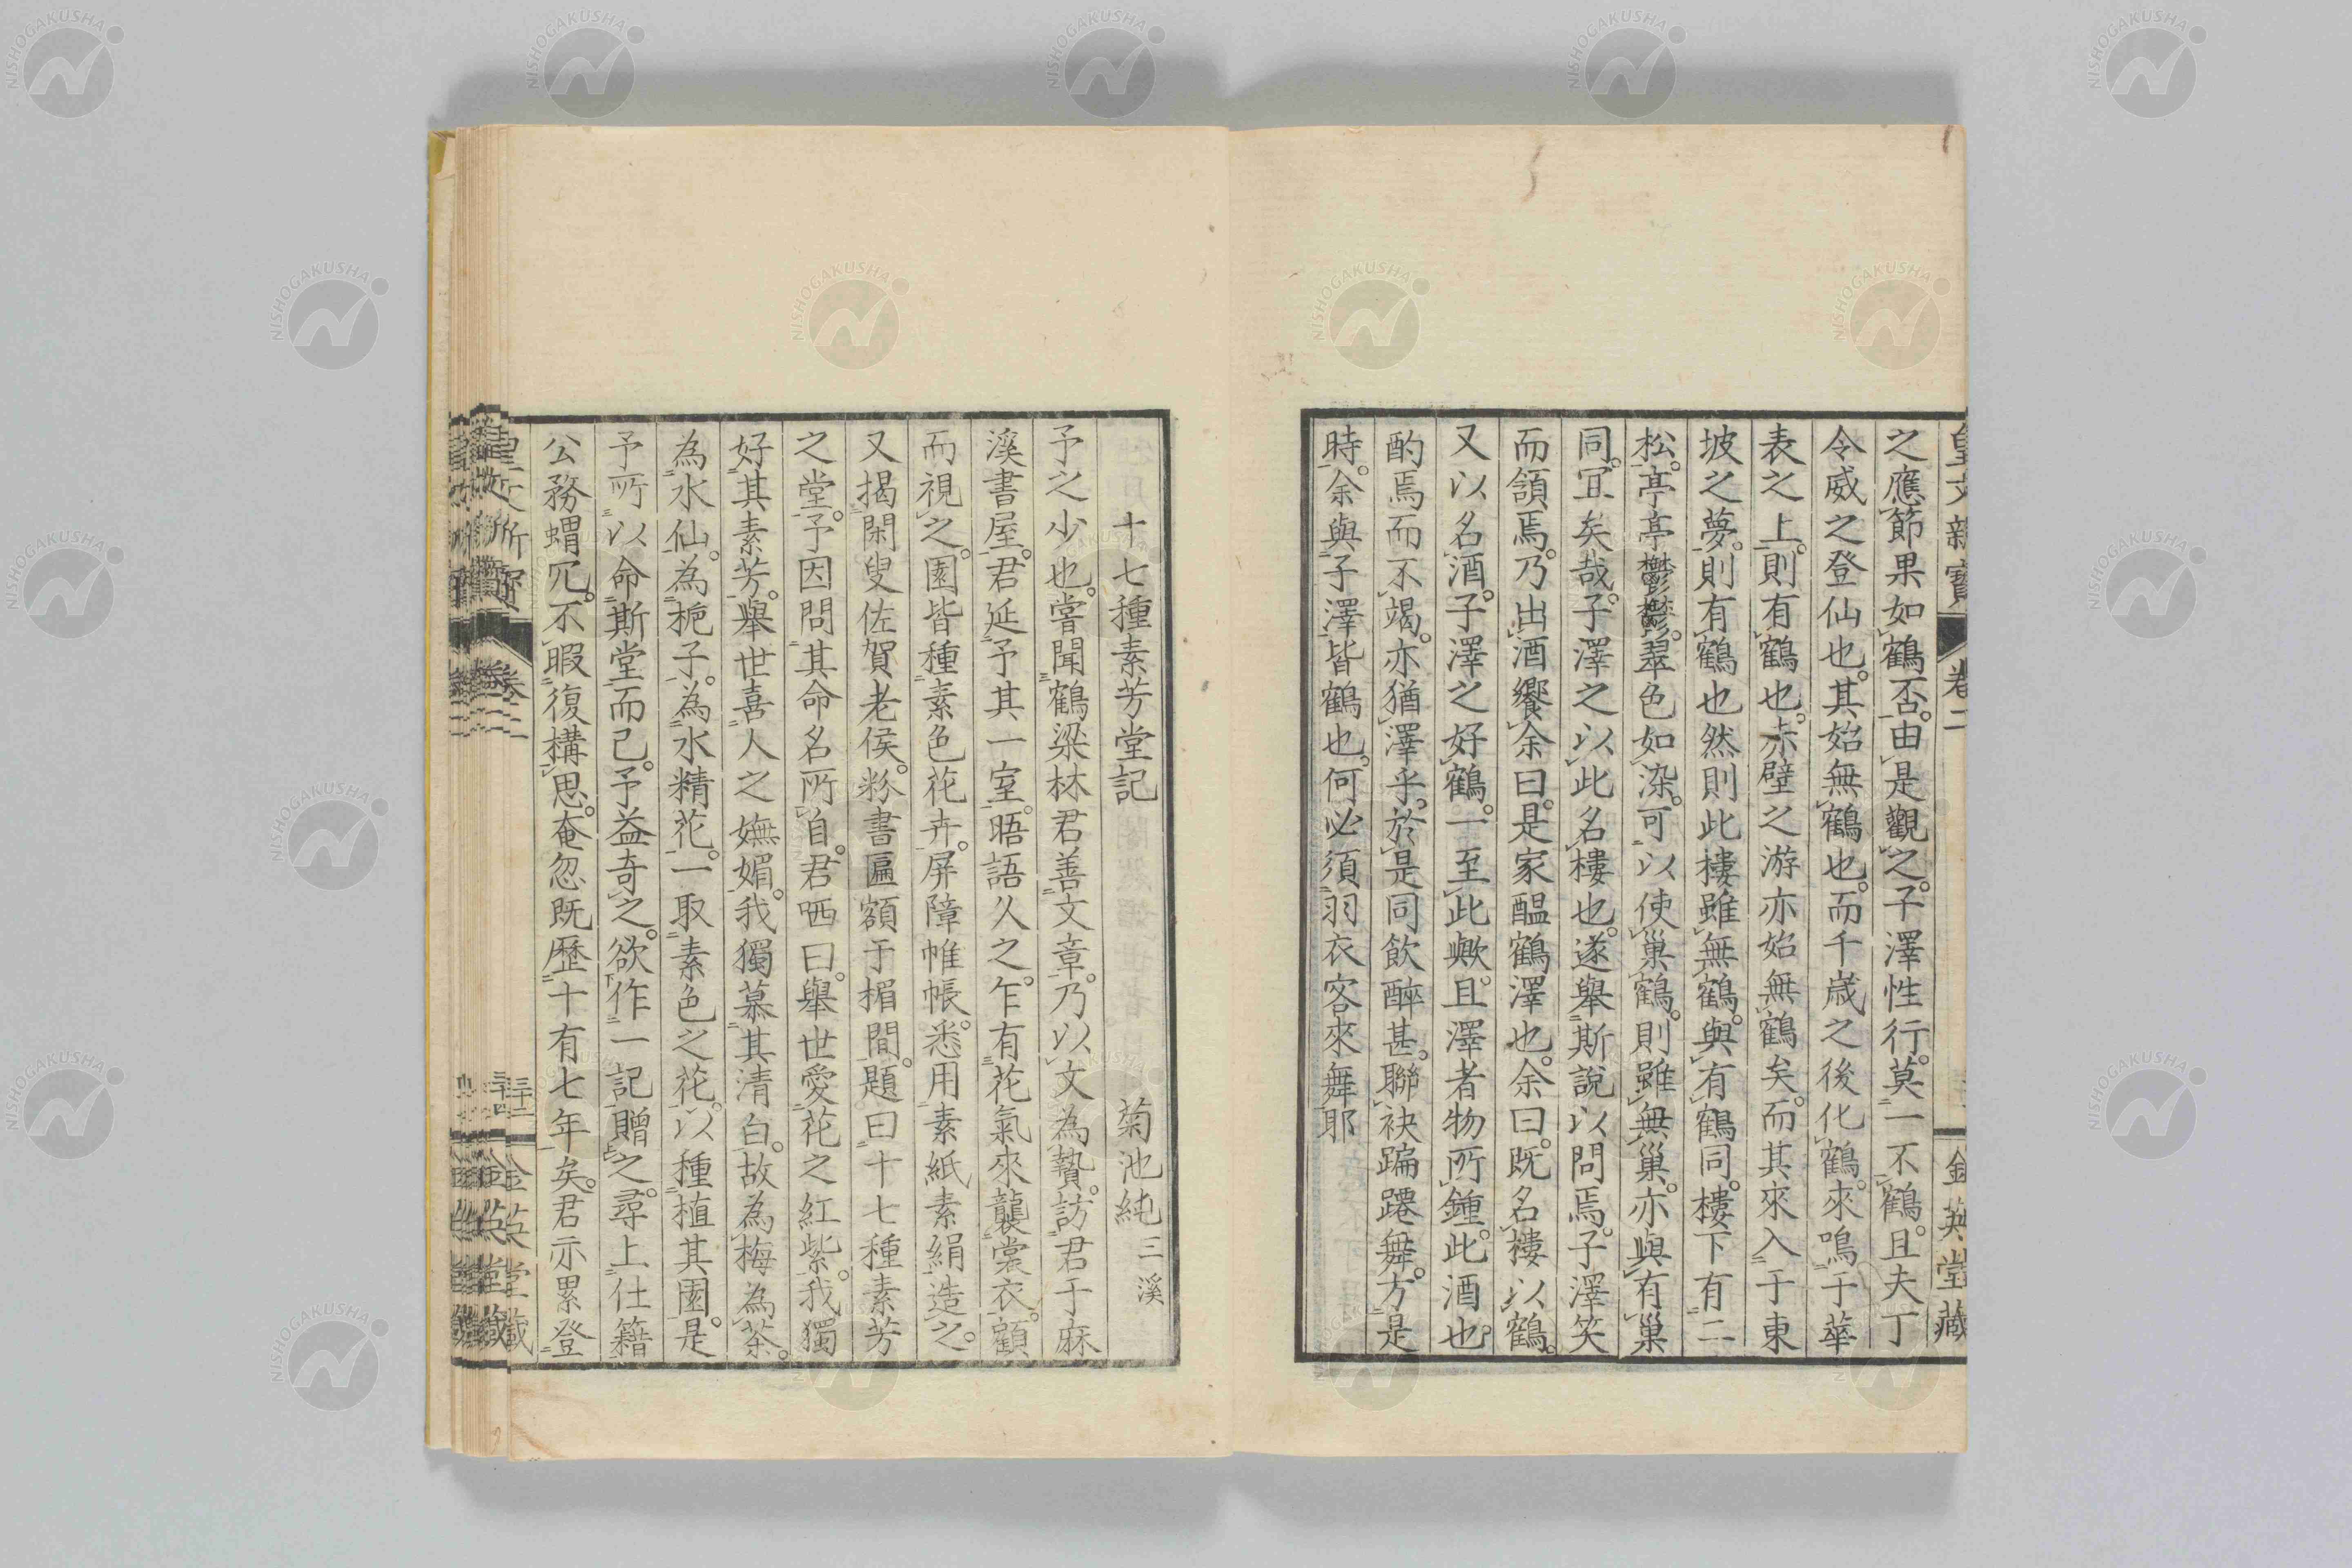 之應節果如鶴否。由是觀之。子澤性行。莫一不鶴。且夫丁
令威之登仙也。其始無鶴也。而千歲之後化鶴。來鳴于華
表之上。則有鶴也。赤壁之游亦始無鶴矣。而其來入于東
坡之夢。則有鶴也然則此樓雖無鶴。與有鶴同。樓下有二
松。亭亭鬱鬱。翠色如染。可以使巢鶴。則雖無巢。亦與有巢
同。宜矣哉。子澤之以此名樓也。遂舉斯說以問焉。子澤笑
而頷焉。乃出酒饗余曰。是家醞鶴澤也。余曰。既名樓以鶴。
又以名酒。子澤之好鶴。一至此歟。且澤者物所鍾。此酒也。
酌焉而不竭。亦猶澤乎。於是同飲醉甚。聯袂蹁躚舞。方是
時。余與子澤皆鶴也。何必須羽衣客來舞耶
十七種素芳堂記 菊池純 三溪
予之少也。嘗聞鶴梁林君善文章。乃以文為贄。訪君于麻
溪書屋。君延予其一室。晤語久之。乍有花氣來襲裳衣。顧
而視之。園皆種素色花卉。屏障帷帳。悉用素紙素絹造之。
又揭閑叟佐賀老侯。粉書匾額于楣間。題曰十七種素芳
之堂。予因問其命名所自。君哂曰。舉世愛花之紅紫。我獨
好其素芳。舉世喜人之嫵媚。我獨慕其清白。故為梅為茶。
為水仙。為梔子。為水精花。一取素色之花。以種植其園。是
予所以命斯堂而已。予益奇之。欲作一記贈之。尋上仕籍
公務蝟冗。不暇復構思。奄忽既歷十有七年矣。君亦累登
皇文新寶
卷二
金英堂藏